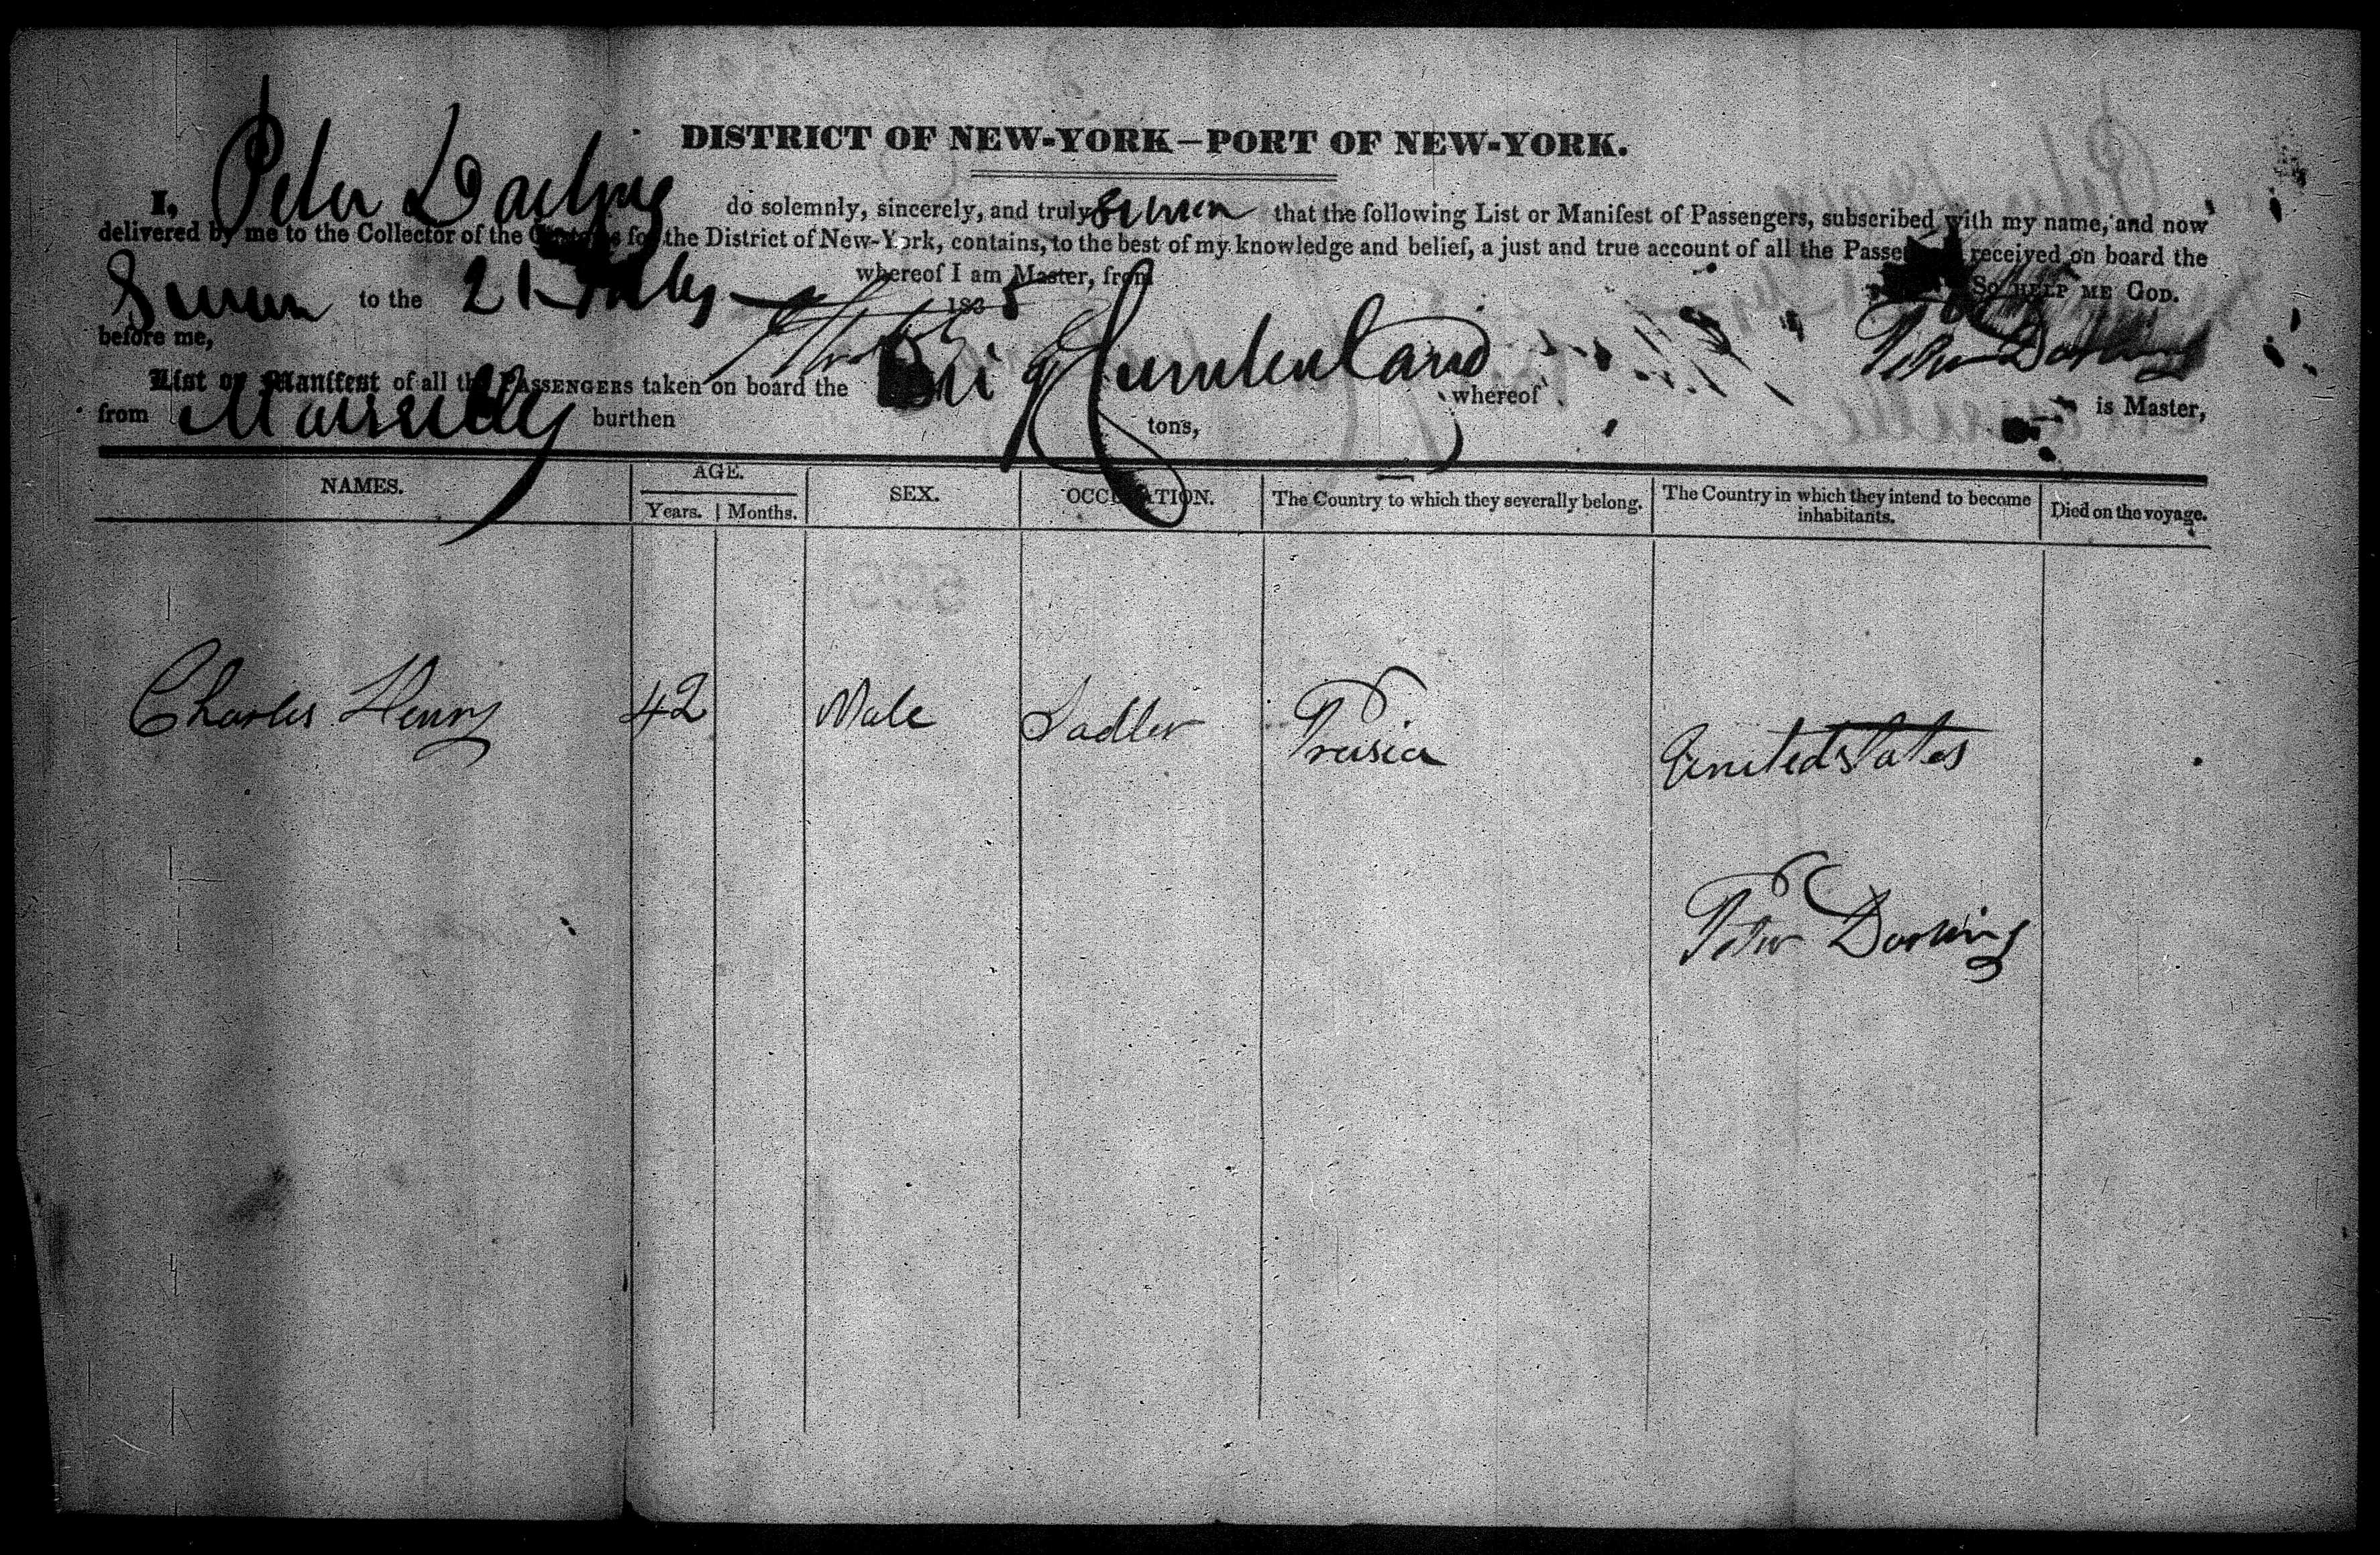 DISTRICT OF NEW-YORK—PORT OF NEW-YORK.
I, Peter Darling do solemnly, sincerely, and truly swear that the following List or Manifest of Passengers, subscribed with my name, and now
delivered by me to the Collector of the Customs for the District of New-York, contains, to the best of my knowledge and belief, a just and true account of all the Passengers received on board the
whereof I am Master, from
Sworn to the 21 July 1835 So HELP ME GOD.
before me, Peter Darling
List or Manifest of all the PASSENGERS taken on board the Cumberland whereof
from Marseilles burthen tons, is Master,
NAMES. AGE. SEX. OCCUPATION. The Country to which they severally belong. The Country in which they intend to become inhabitants. Died on the voyage.
Years. Months.
Charles Henry 42 Male Sadler Prusia United States
Peter Darling